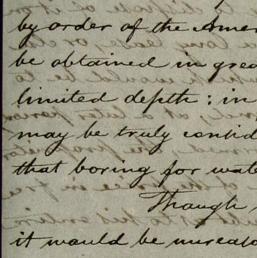 by order of the Amer
be obtained in grea
limited depth: in
may be truly
that boring for wat
Though
it would be